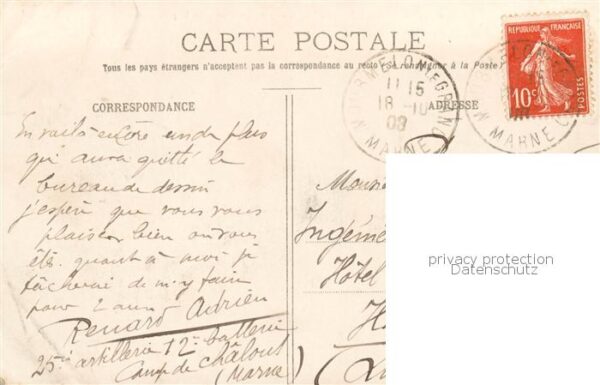 CARTE POSTALE
Tous les pays étrangers n'acceptent pas la correspondance au recto (Se renseigner à la Poste)
RÉPUBLIQUE FRANÇAISE
10c
POSTES
MOURMELON-LE-GRAND
11 15
18 -10
08
MARNE
MARNE
CORRESPONDANCE
ADRESSE
En voilà encore un de plus
qui aura quitté le
bureau de dessin
j'espère que vous vous
plaisez bien où vous
êts. quant à moi je
tâcherai de m'y faire
pour 2 ans
Renard Adrien
25e artillerie 12e batterie
Camp de Châlons
(Marne)
Monsie
Ingénie
Hôtel
privacy protection
Datenschutz